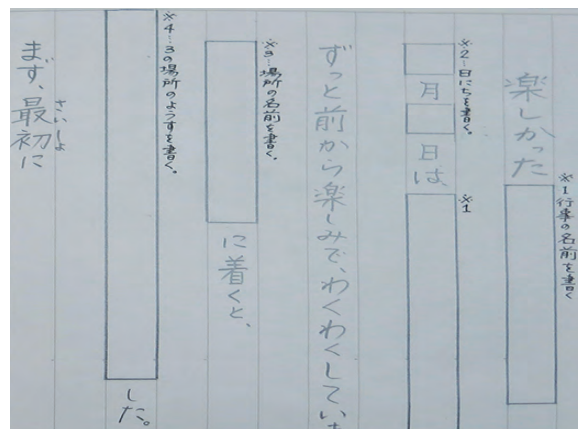 ※1行事の名前を書く
楽しかった
※2-日にちを書く。
※1
月 日は
ずっと前から楽しみで、わくわくしていま
※3-場所の名前を書く。
に着くと、
※4-3の場所のようすを書く。
した。
さいしょ
まず、最初に